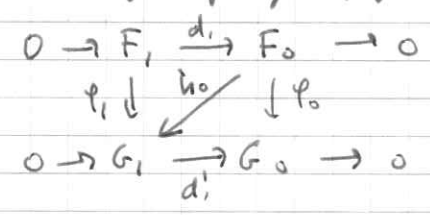 0 → F₁ d₁→ F₀ → 0
φ₁ ↓ h₀ ↙ ↓ φ₀
0 → G₁ →d₁' G₀ → 0